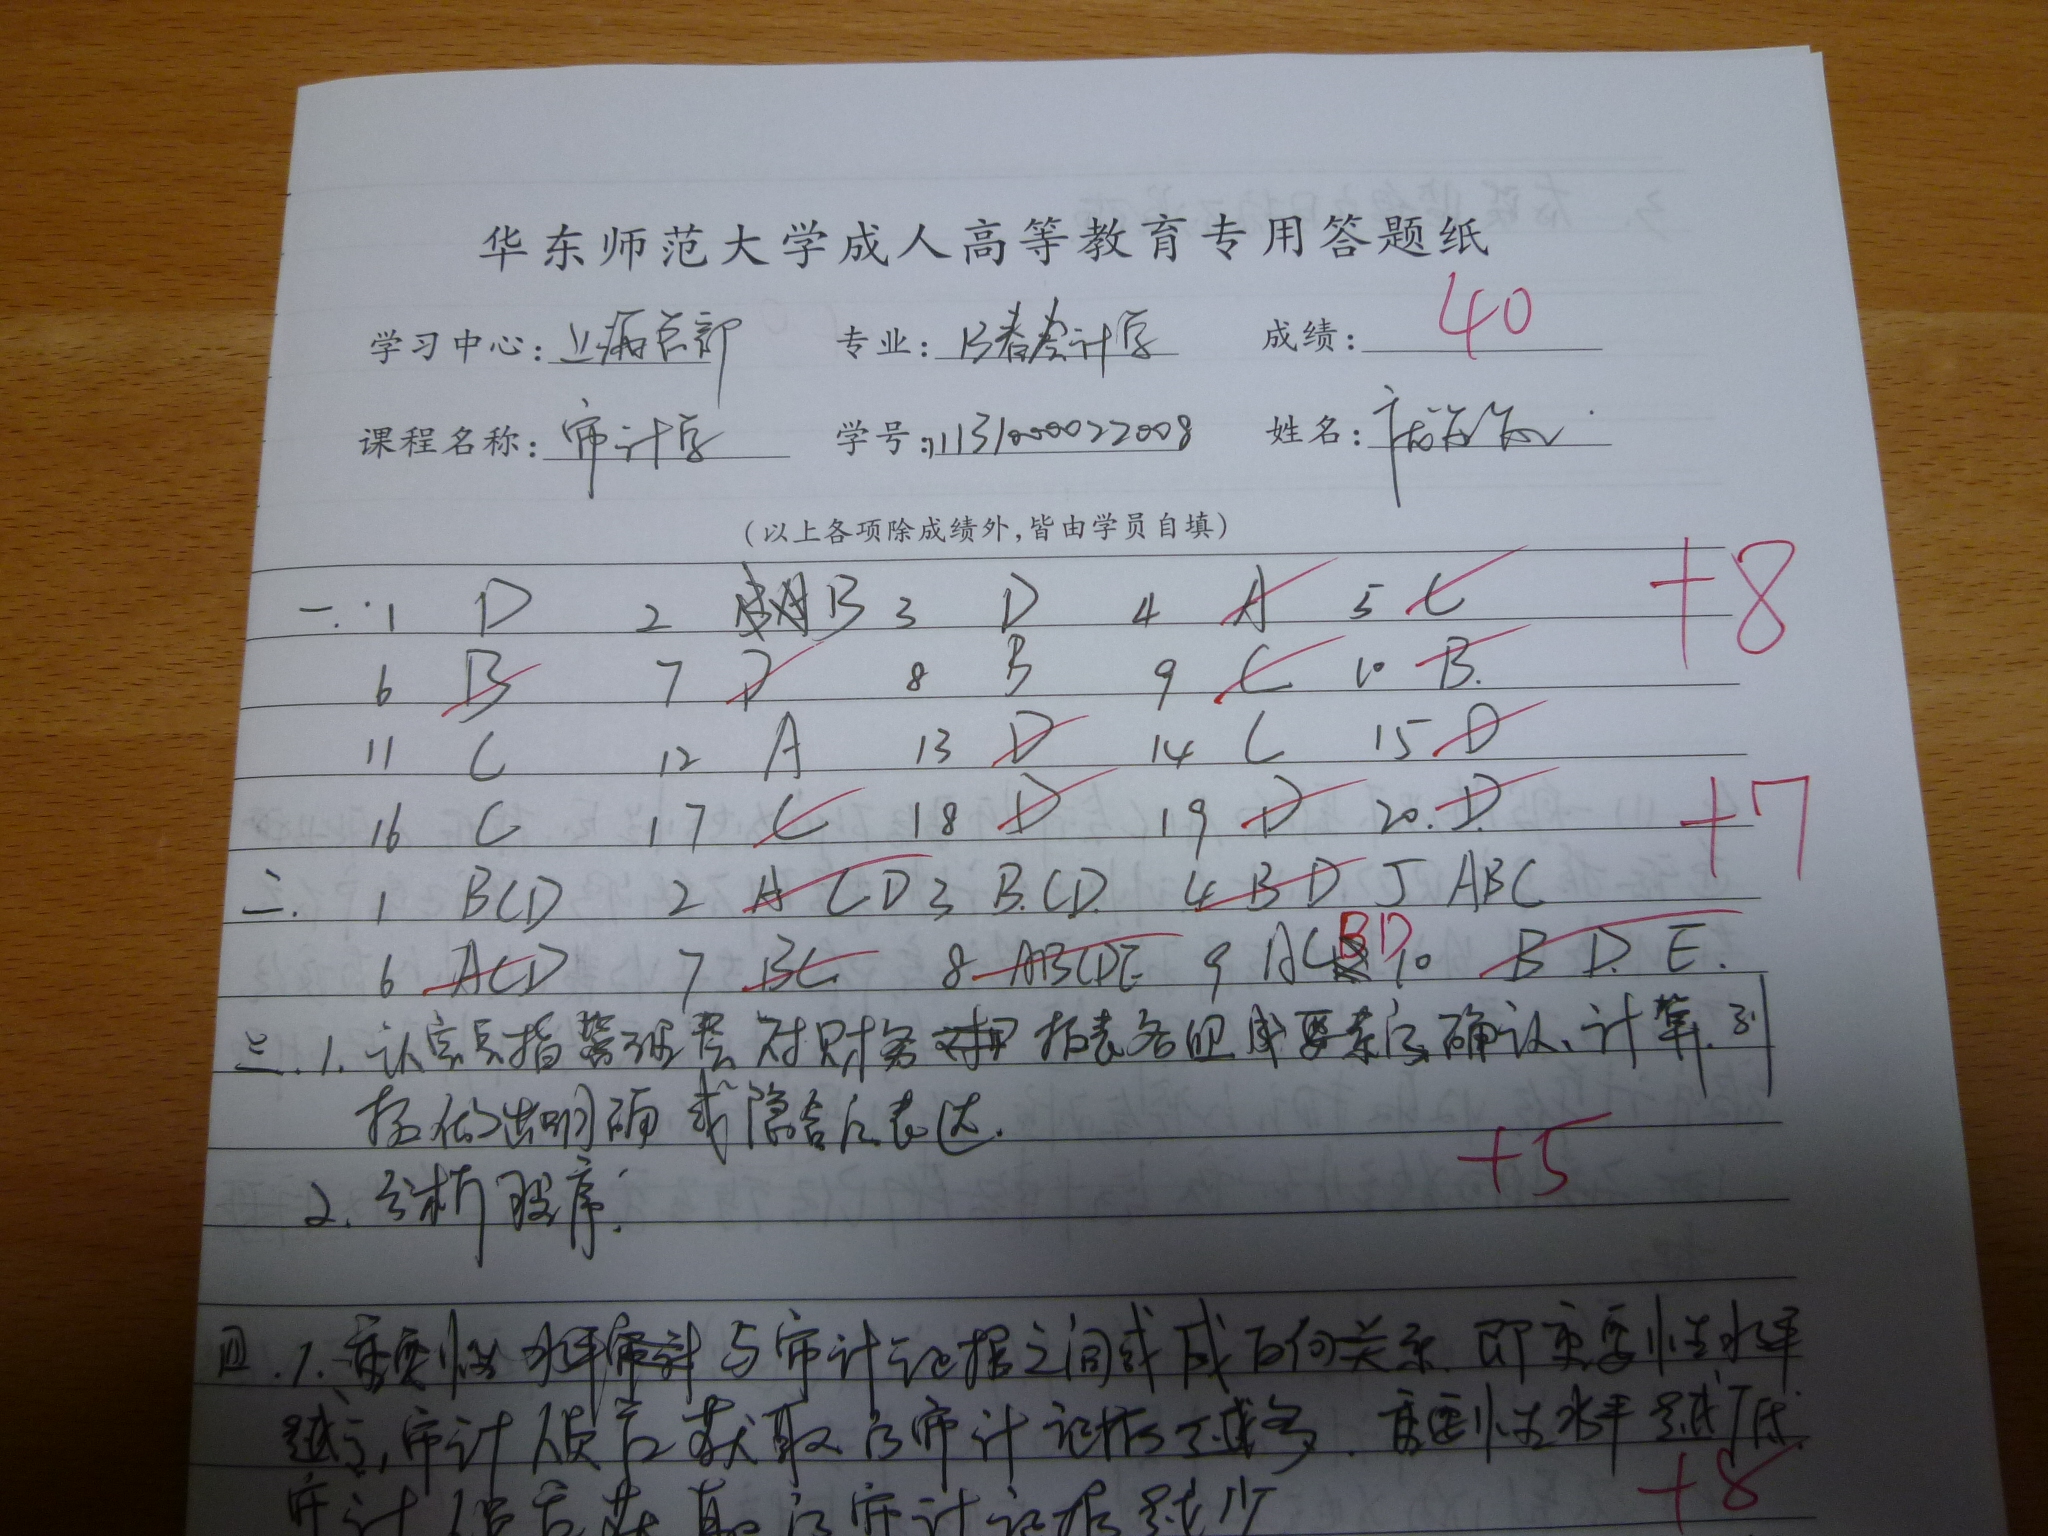 华东师范大学成人高等教育专用答题纸
学习中心: 上海总部 专业: B春会计学 成绩: 40
课程名称: 审计学 学号: 113100022008 姓名:
(以上各项除成绩外,皆由学员自填)
一. 1 D 2 B 3 D 4 A 5 C +8
6 B 7 D 8 B 9 C 10 B.
11 C 12 A 13 D 14 C 15 D
16 C 17 C 18 D 19 D 20. D. +7
二. 1 BCD 2 A CD 3 B.CD. 4 B D 5 ABC
6 ACD 7 BC 8 ABCDE 9 AC BD 10 B D. E.
三. 1. 认定是指 对财务 报表各组成要素的确认、计算、列
报做出明确或隐含的表达.
+5
2. 分析程序.
四. 1. 重要性水平 与审计证据之间或成反向关系. 即重要性水平
越 , 审计人员应获取的审计证据越多. 重要性水平越低.
审计人员应获取的审计证据越少 +8